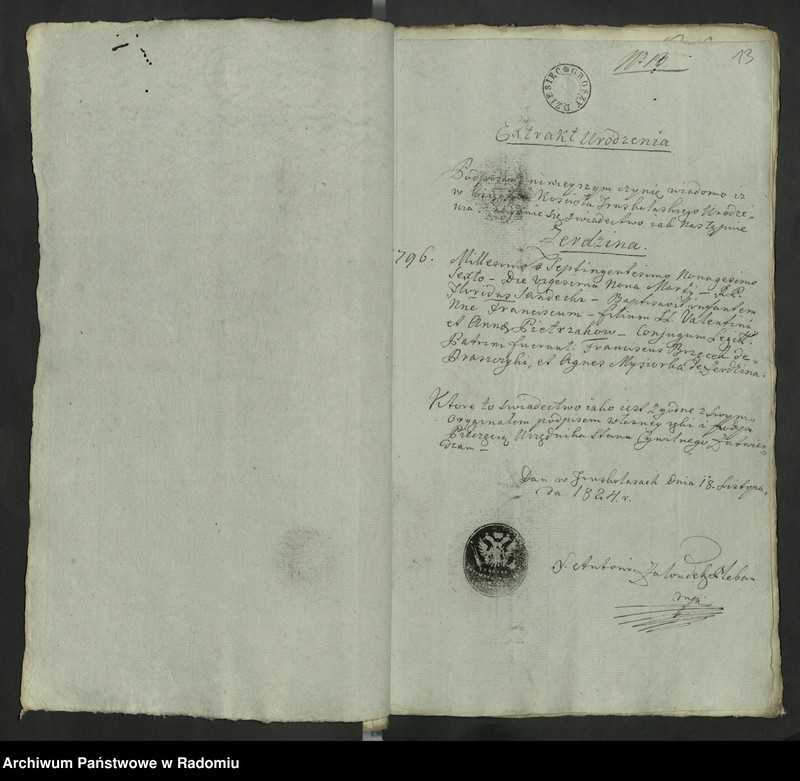 No 13
13
DZIESIĘC GROSZY
Extrakt Urodzenia
Podpisany ninieyszym czynię wiadomo iż
w Kościoła Truskolaskiego Urodze-
nia znayduie się świadectwo iak następuie
Zerdzina.
1796. Millesimo Septingentesimo Nonagesimo
Sexto – Die Vigesima Nona Martij – R.P.
Floridus Sandecki – Baptisavit infantem
Nne Franciscum – filium LL. Valentini
et Anna Pietrzaków – Conjugum Legit
Patrini fuerunt: Franciscus Brzęcek de
Praszczyki, et Agnes Mysiorka de Zerdzina.
Które to świadectwo iako iest zgodne z swym
Oryginałem podpisem własney ręki i
Pieczęcią Urzędnika Stanu Cywilnego zatwier-
dzam –
Dan w Truskolasach Dnia 18. Listopa-
da 1824. r.
X. Antoni Pleban
mpp
Archiwum Państwowe w Radomiu